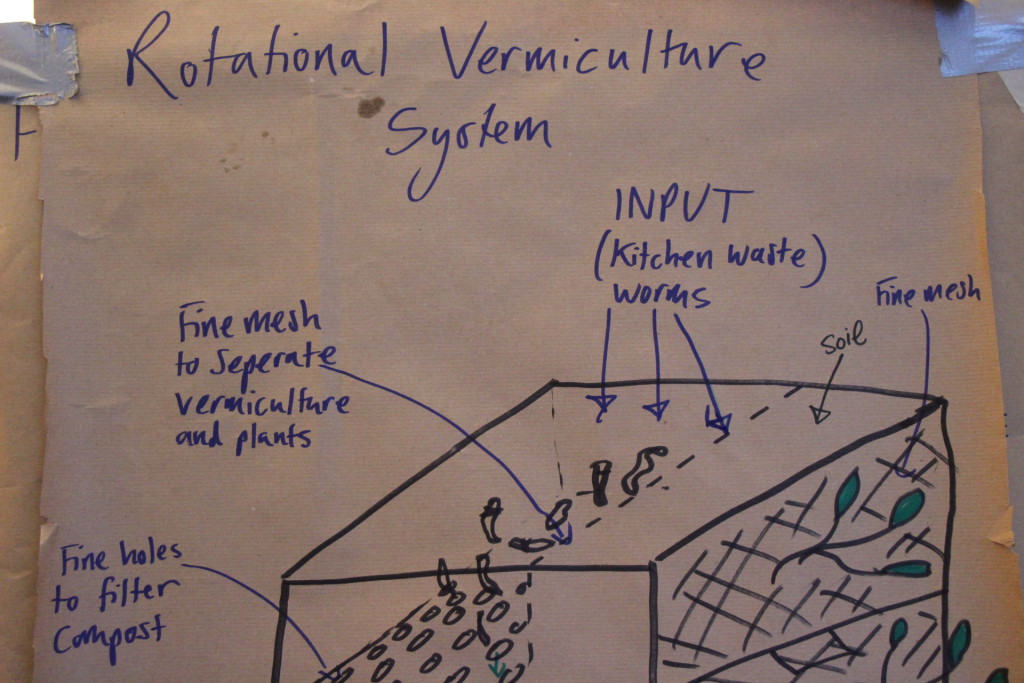 Rotational Vermiculture
System
INPUT
(Kitchen waste)
worms
Fine mesh
soil
Fine mesh
to seperate
vermiculture
and plants
Fine holes
to filter
compost
F